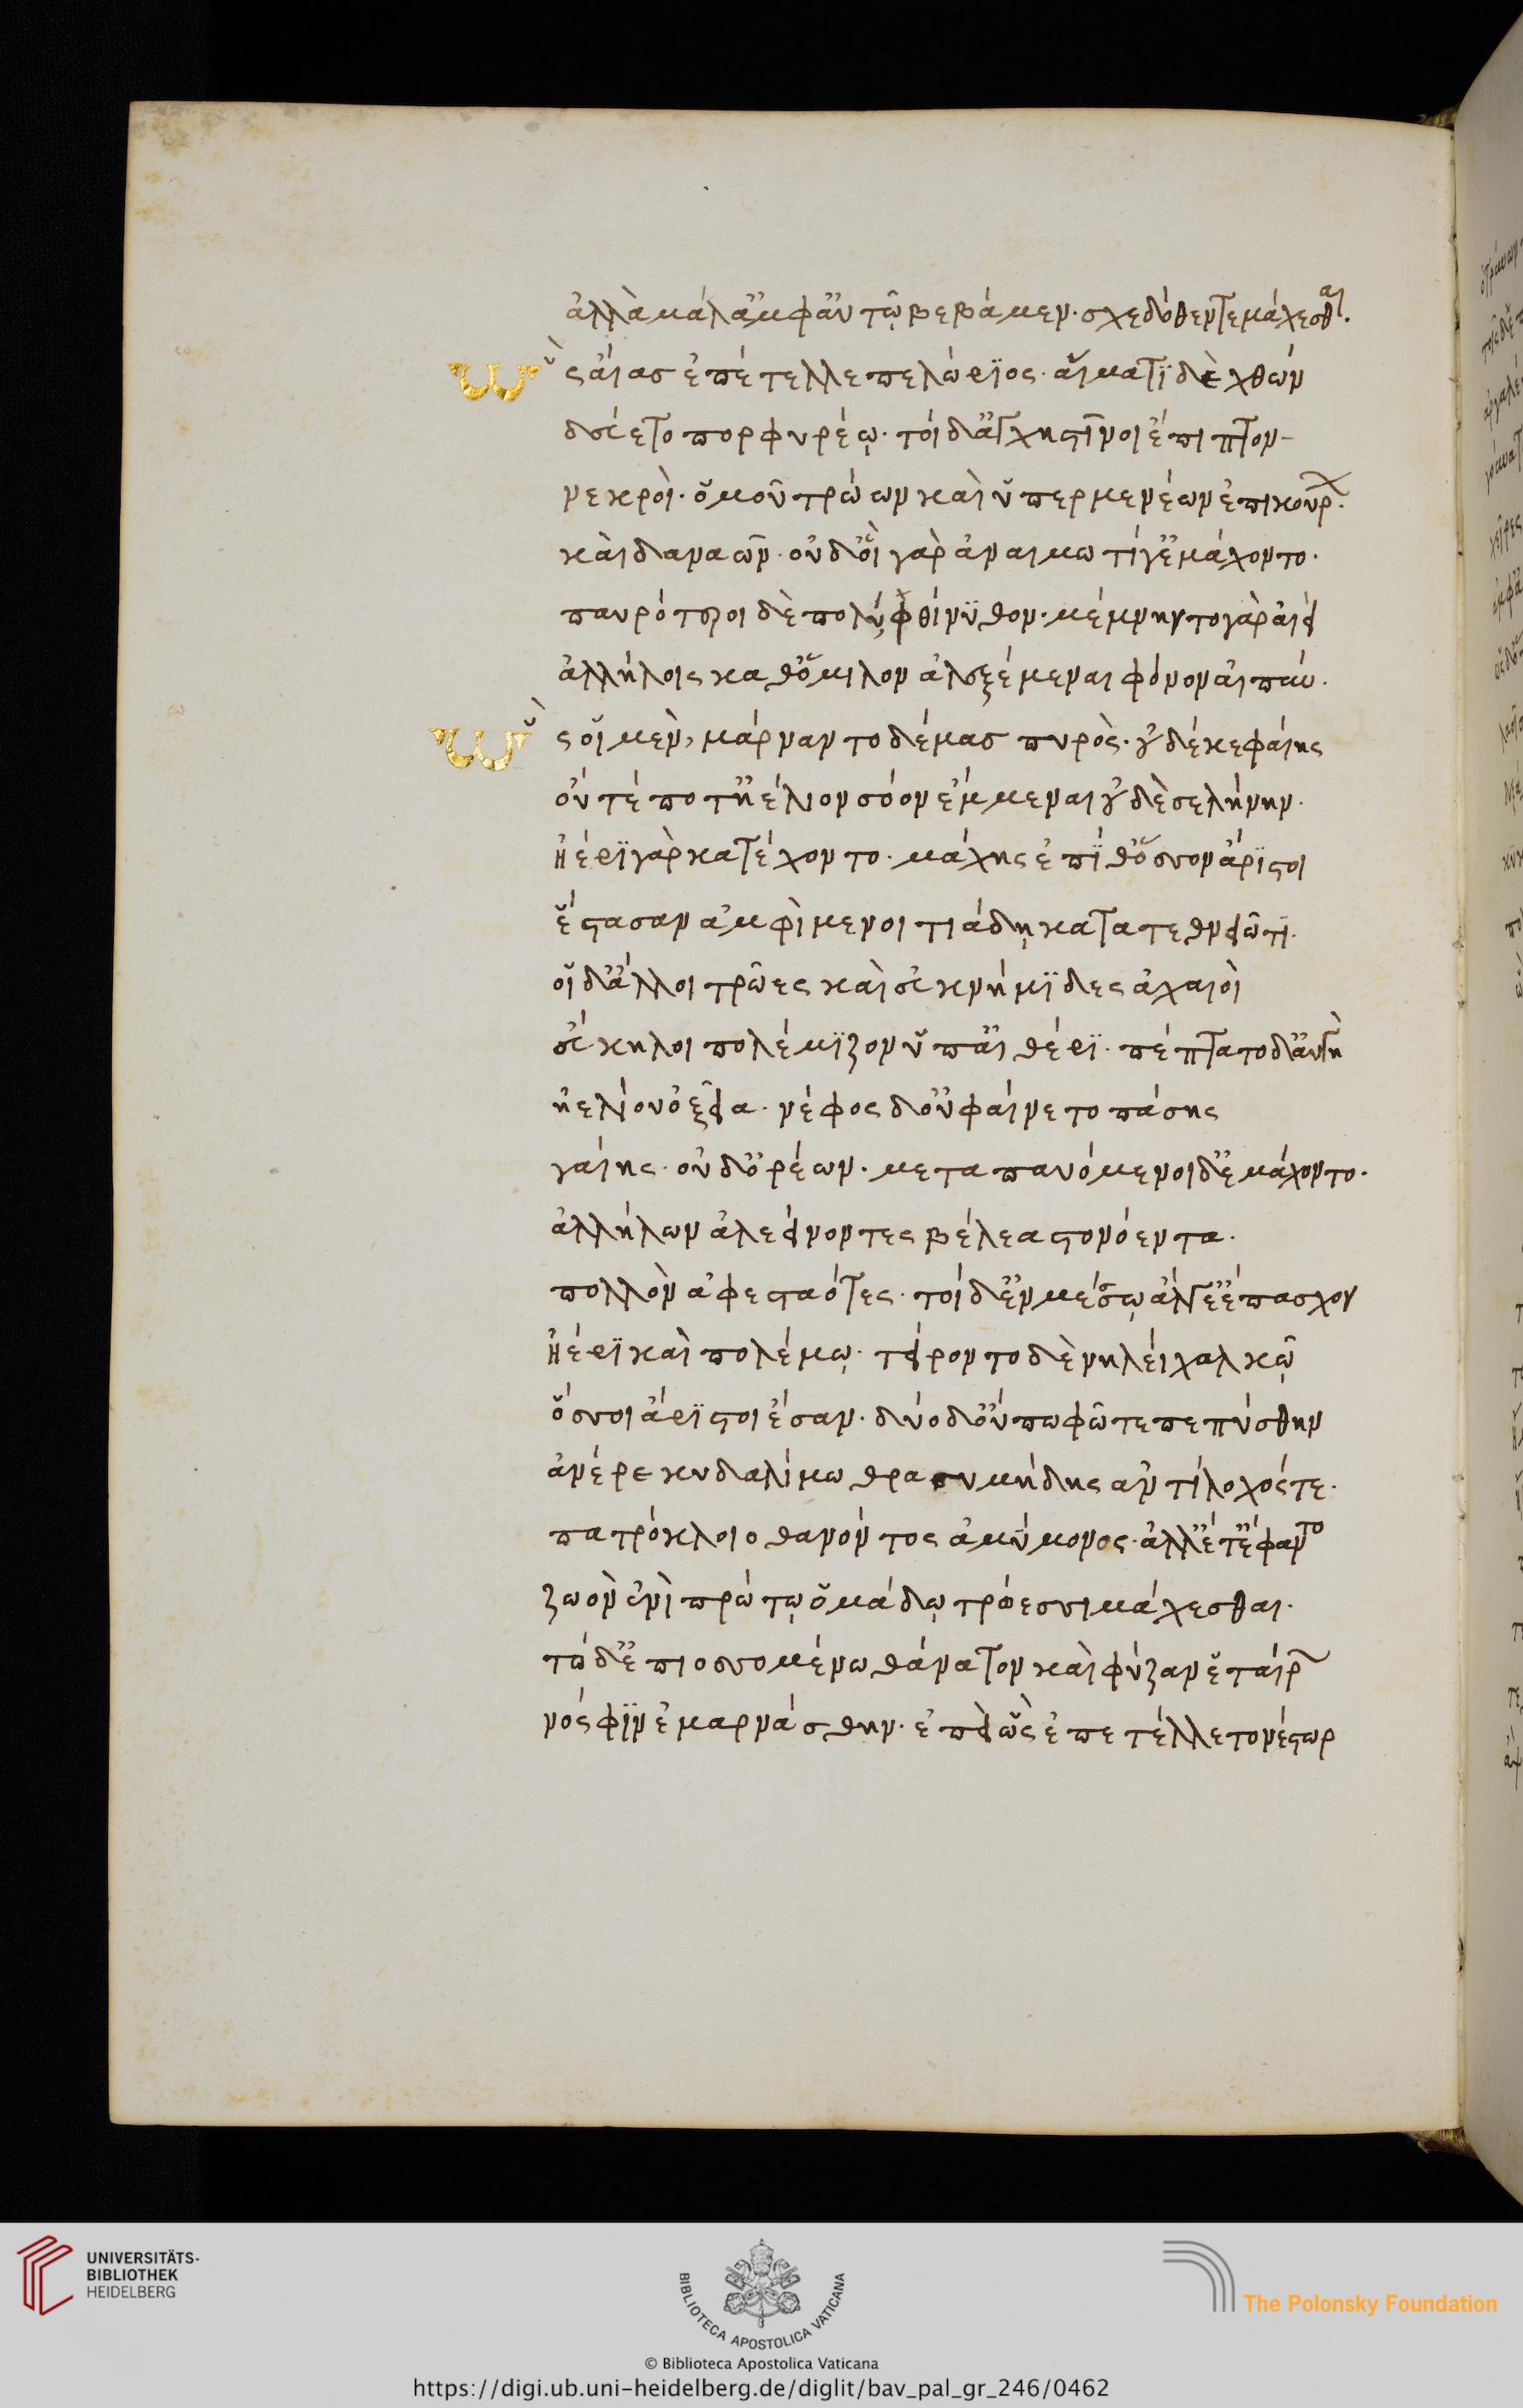 ἀλλὰ μάλ' ἀμφ' αὐτῷ βεβάμεν· σχεδόθεν τε μάχεσθαι·
ὣς αἴας ἐπέτελλε πελώριος· αἵματι δὲ χθὼν
δεύετο πορφυρέῳ· τοὶ δ' ἀγχηστῖνοι ἔπιπτον
νεκροὶ· ὁμοῦ τρώων καὶ ὑπερμενέων ἐπικούρων·
καὶ δαναῶν· οὐδ' οἳ γὰρ ἀναιμωτί γ' ἐμάχοντο·
παυρότεροι δὲ πολὺ φθίνυθον· μέμνηντο γὰρ αἰεὶ
ἀλλήλοις καθ' ὅμιλον ἀλεξέμεναι φόνον αἰπύν·
ὣς οἱ μὲν, μάρναντο δέμας πυρὸς· οὐδέ κε φαίης
οὔτέ ποτ' ἠέλιον σόον ἔμμεναι οὐδὲ σελήνην·
ἠέρι γὰρ κατέχοντο· μάχης ἐπί θ' ὅσσον ἄριστοι
ἕστασαν ἀμφὶ μενοιτιάδῃ κατατεθνειῶτι·
οἱ δ' ἄλλοι τρῶες καὶ ἐυκνήμιδες ἀχαιοὶ
εὔκηλοι πολέμιζον ὑπ' αἰθέρι· πέπτατο δ' αὐγὴ
ἠελίου ὀξεῖα· νέφος δ' οὐ φαίνετο πάσης
γαίης· οὐδ' ὀρέων· μεταπαυόμενοι δ' ἐμάχοντο·
ἀλλήλων ἀλεείνοντες βέλεα στονόεντα·
πολλὸν ἀφεσταότες· τοὶ δ' ἐν μέσσῳ ἄλγε' ἔπασχον
ἠέρι καὶ πολέμῳ· τείροντο δὲ νηλέι χαλκῷ
ὅσσοι ἄριστοι ἔσαν· δύο δ' οὔπω φῶτε πεπύσθην
ἀνέρε κυδαλίμω θρασυμήδης ἀντίλοχός τε·
πατρόκλοιο θανόντος ἀμύμονος· ἀλλ' ἔτ' ἔφαντο
ζωὸν ἐνὶ πρώτῳ ὁμάδῳ τρώεσσι μάχεσθαι·
τὼ δ' ἐπιοσσομένω θάνατον καὶ φύζαν ἑταίρων
νόσφιν ἐμαρνάσθην· ἐπεὶ ὣς ἐπετέλλετο νέστωρ
UNIVERSITÄTS-
BIBLIOTHEK
HEIDELBERG
BIBLIOTECA APOSTOLICA VATICANA
The Polonsky Foundation
© Biblioteca Apostolica Vaticana
https://digi.ub.uni-heidelberg.de/diglit/bav_pal_gr_246/0462